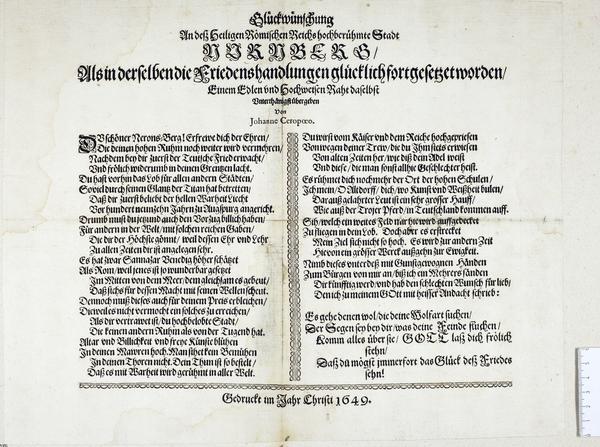 Glückwünschung
An deß Heiligen Römischen Reichs hochberühmte Stadt
NÜRNBERG/
Als in derselben die Friedenshandlungen glücklich fortgesetzet worden/
Einem Edlen vnd Hochweisen Raht daselbst
Vnterthänigst übergeben
Von
Johanne Ceropœo.
DU schöner Nerons-Berg! Erfrewe dich der Ehren/
Die deinen hohen Ruhm noch weiter wird vermehren/
Nachdem bey dir zuerst der Teutsche Fried erwacht/
Vnd frölich widerumb in deinen Grentzen lacht.
Du hast vorhin das Lob für allen andern Städten/
So viel durch seinen Glantz der Titan hat betretten/
Daß dir zuerst beliebt der hellen Warheit Liecht
Vor hundert neunzehn Jahren zu Augspurg angericht.
Drumb must du jetzund auch den Vorzug billich haben/
Für andern in der Welt/ mit solchen reichen Gaben/
Die dir der Höchste gönnt/ weil dessen Ehr vnd Lehr
Zu allen Zeiten dir ist angelegen sehr.
Es hat zwar Sannazar Venedig höher schätzet
Als Rom/ weil jenes ist so wunderbar gesetzet
Im Mitten von dem Meer/ dem gleichsam es gebeut/
Daß stehs für dessen Macht mit seinen Wellen scheut.
Dennoch muß dieses auch für deinem Preis erbleichen/
Dieweil es nicht vermocht ein solches zu erreichen/
Als dir vertrawet ist/ du hochbelobte Stadt/
Die keinen andern Ruhm als von der Tugend hat.
Altar vnd Billichkeit vnd freye Künste blühen
In deinen Mawren hoch. Manfthetken Bemühen
In deinen Thoren nicht. Dein Thun ist so bestellt/
Daß es mit Warheit wird gerühmt in aller Welt.
Du wirst vom Käiser vnd dem Reiche hochgepriesen
Von wegen deiner Trew/ die du Ihm stets erwiesen
Von alten Zeiten her/ wie diß dein Adel weist
Vnd diese/ die man sonst alhie Geschlechter heist.
Es rühmt dich noch mehr der Ort der hohen Schulen/
Ich mein/ O Altdorff/ dich/ wo Kunst vnd Weißheit bulen/
Darauß gelahrter Leut ist ein sehr grosser Hauff/
Wie auß der Trojer Pferd/ in Teutschland kommen auff.
Sih/ welch ein weites Feld mir hie wird auffgedecket
Zu fliegen in dem Lob. Doch aber es erstrecket
Mein Ziel sich nicht so hoch. Es wird zur andern Zeit
Hievon ein grösser Werck außgehn zur Ewigkeit.
Nimb dieses vnterdeß mit Gunstgewognen Händen
Zum Bürgen von mir an/ biß ich ein Mehrers sänden
Dir künfftig werd/ vnd hab den schlechten Wunsch für lieb/
Den ich zu meinem GOtt mit heisser Andacht schrieb:
Es gehe denen wol/ die deine Wolfart suchen/
Der Segen sey bey dir/ was deine Feinde fluchen/
Komm alles über sie/ GOTT laß dich frölich
stehn/
Daß du mögst immerfort das Glück deß Friedes
sehn!
Gedruckt im Jahr Christi 1649.